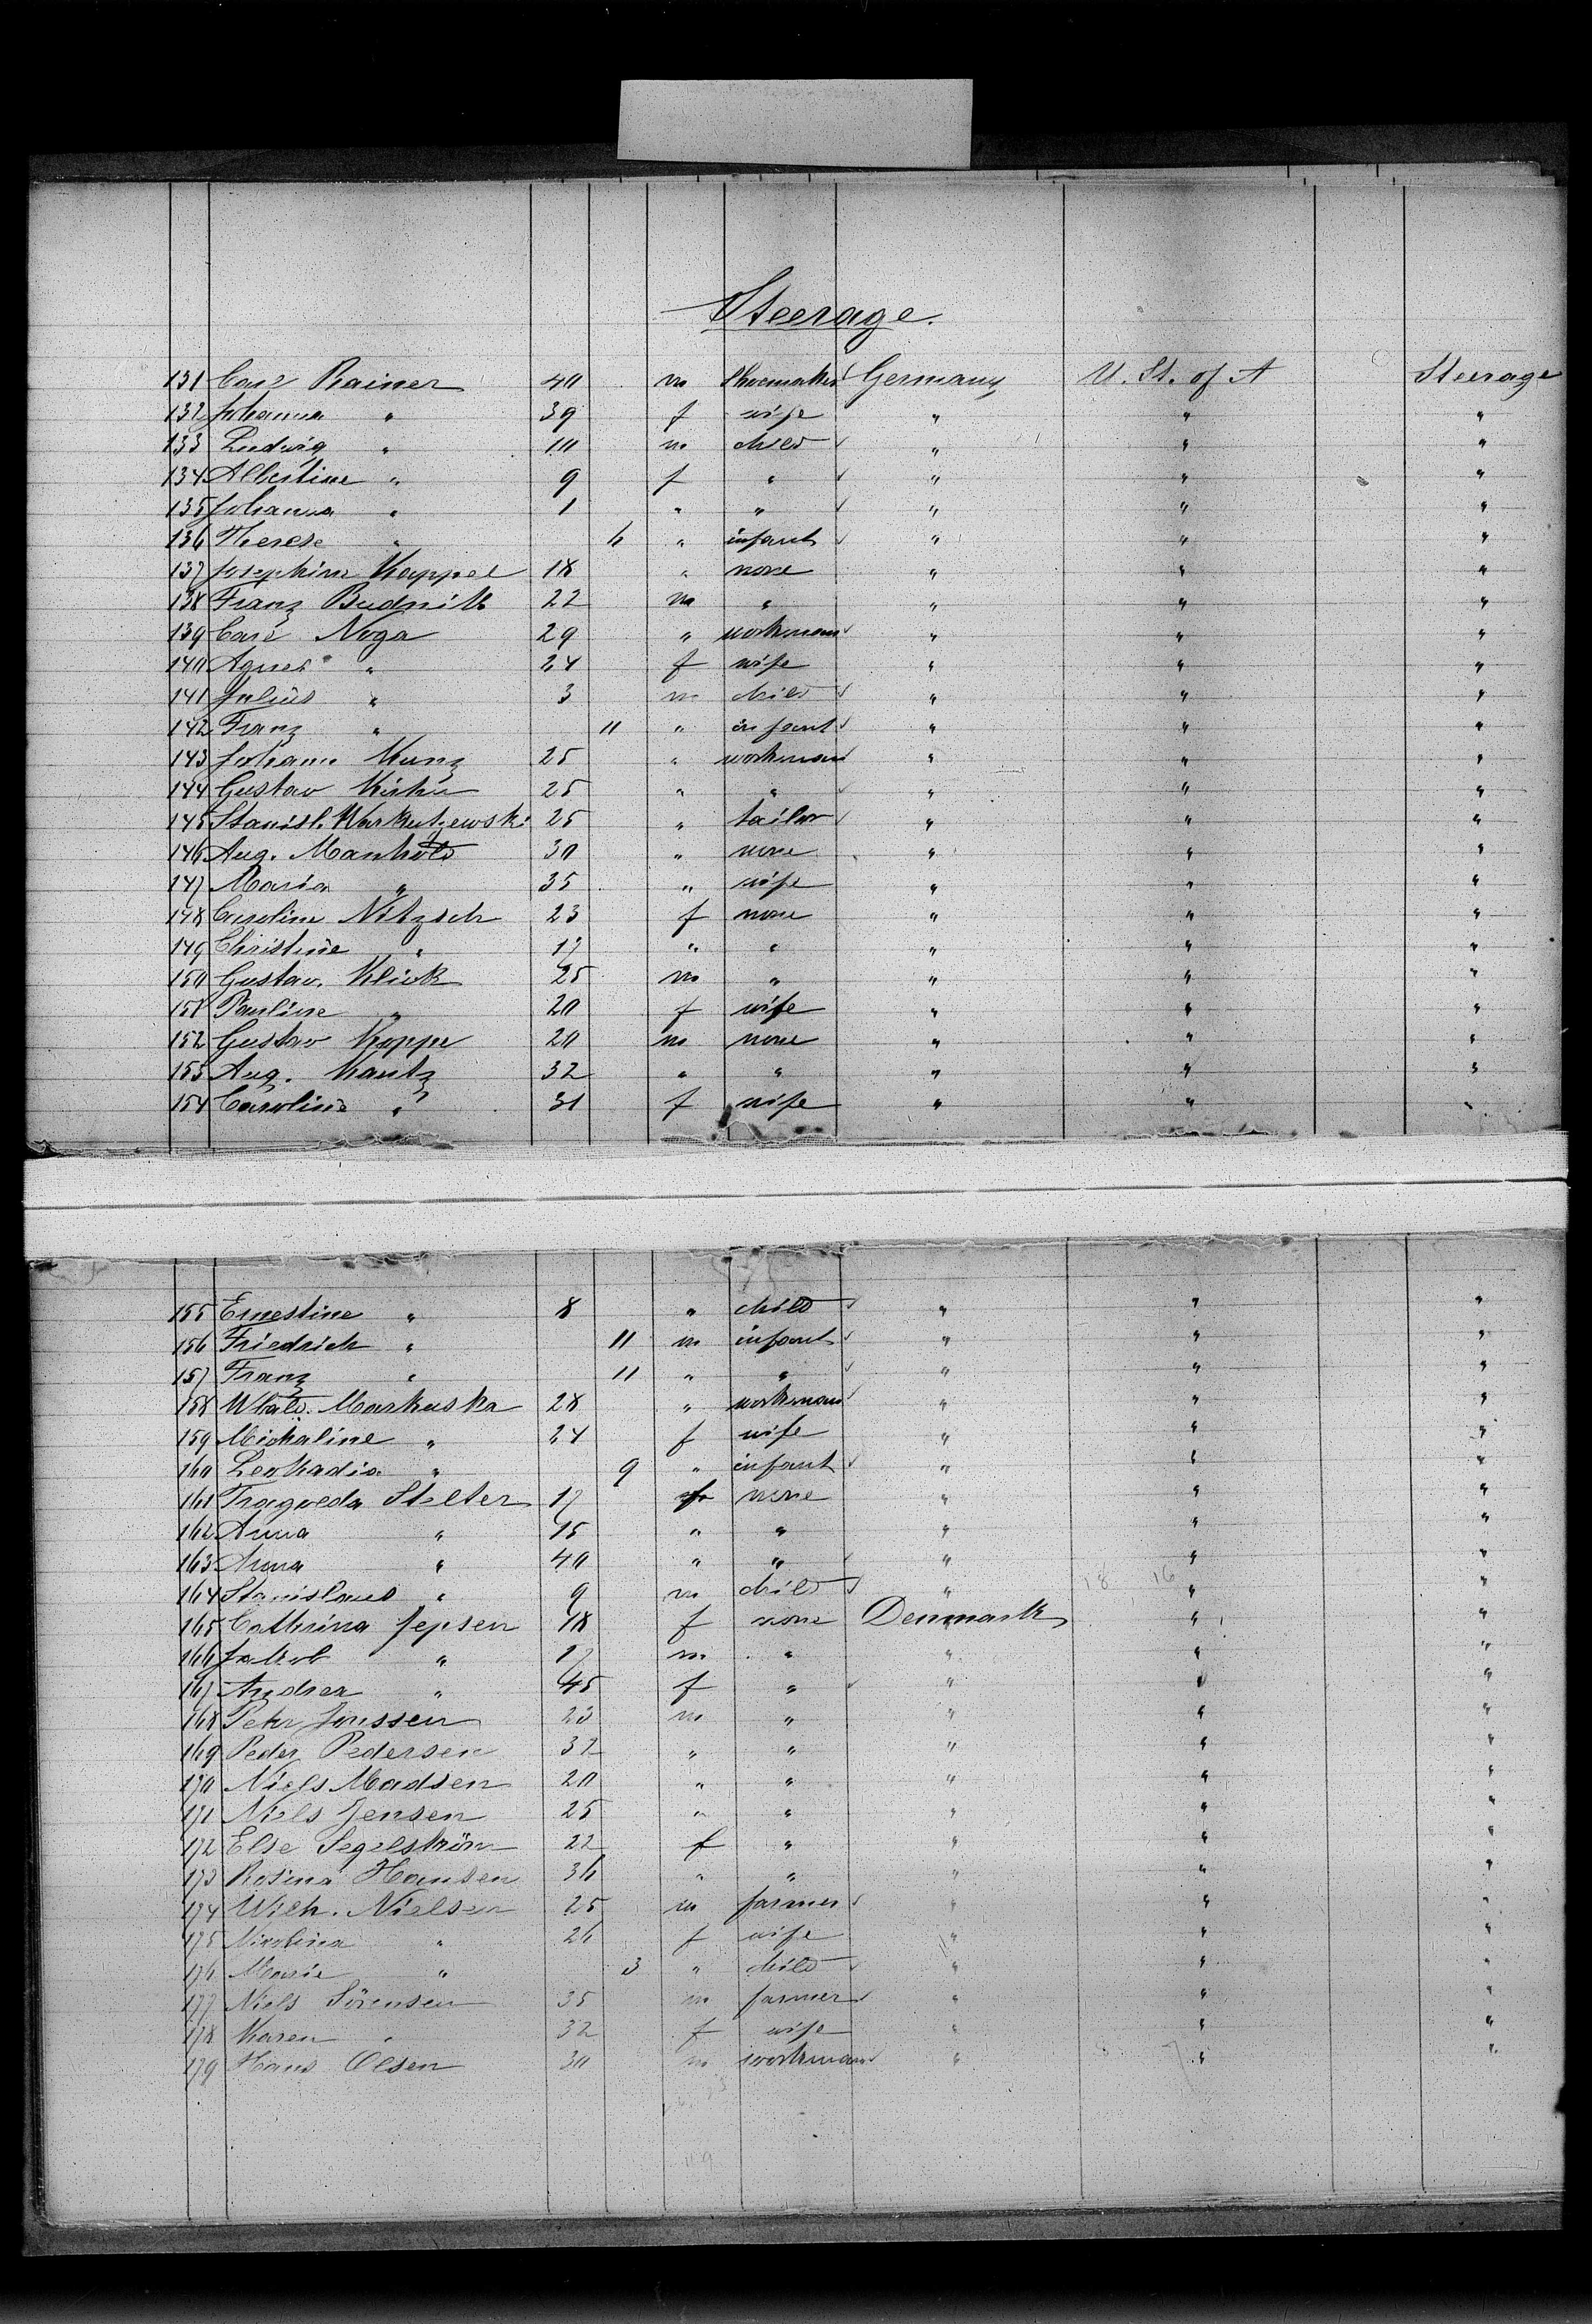 Steerage.
131 Carl Rainer 40 m Shoemaker Germany U. St. of A Steerage
132 Johanna " 39 f wife " " "
133 Ludwig " 10 m child " " "
134 Albertine " 9 f " " " "
135 Johanna " 1 " " " " "
136 Therese " 6 " infant " " "
137 Josephine Kappel 18 " none " " "
138 Franz Budnik 22 m " " " "
139 Carl Noga 29 " workman " " "
140 Agnes " 24 f wife " " "
141 Julius " 3 m child " " "
142 Franz " 11 " infant " " "
143 Johann Kunz 25 " workman " " "
144 Gustav 25 " " " " "
145 Stanisl. Warkutzewski 25 " tailor " " "
146 Aug. Manhold 30 " none " " "
147 Maria " 35 " wife " " "
148 Caroline Nitzsch 23 f none " " "
149 Christine " 17 " " " " "
150 Gustav. Klick 25 m " " " "
151 Pauline " 20 f wife " " "
152 Gustav Koppe 20 m none " " "
153 Aug. Kantz 32 " " " " "
154 Caroline " 31 f wife " " "
155 Ernestine " 8 " child " " "
156 Friedrich " 11 m infant " " "
157 Franz " 11 " " " " "
158 Markuska 28 " workman " " "
159 Michaline " 24 f wife " " "
160 Leokadia " 9 " infant " " "
161 Stelter 17 f none " " "
162 Anna " 15 " " " " "
163 Anna " 40 " " " " "
164 Stanislaus " 9 m child " " "
165 Cathrina Jepsen 18 f none Denmark " "
166 Jakob " 17 m " " " "
167 Andrea " 45 f " " " "
168 Peter Jonssen 23 m " " " "
169 Peder Pedersen 32 " " " " "
170 Niels Madsen 20 " " " " "
171 Niels Jensen 25 " " " " "
172 Else Segelström 22 f " " " "
173 Rosina Hansen 36 " " " " "
174 Wilh. Nielsen 25 m farmer " " "
175 Nicolina " 26 f wife " " "
176 Marie " 3 " child " " "
177 Niels Sörensen 35 m farmer " " "
178 Karen " 32 f wife " " "
179 Hans Olsen 30 m workman " " "